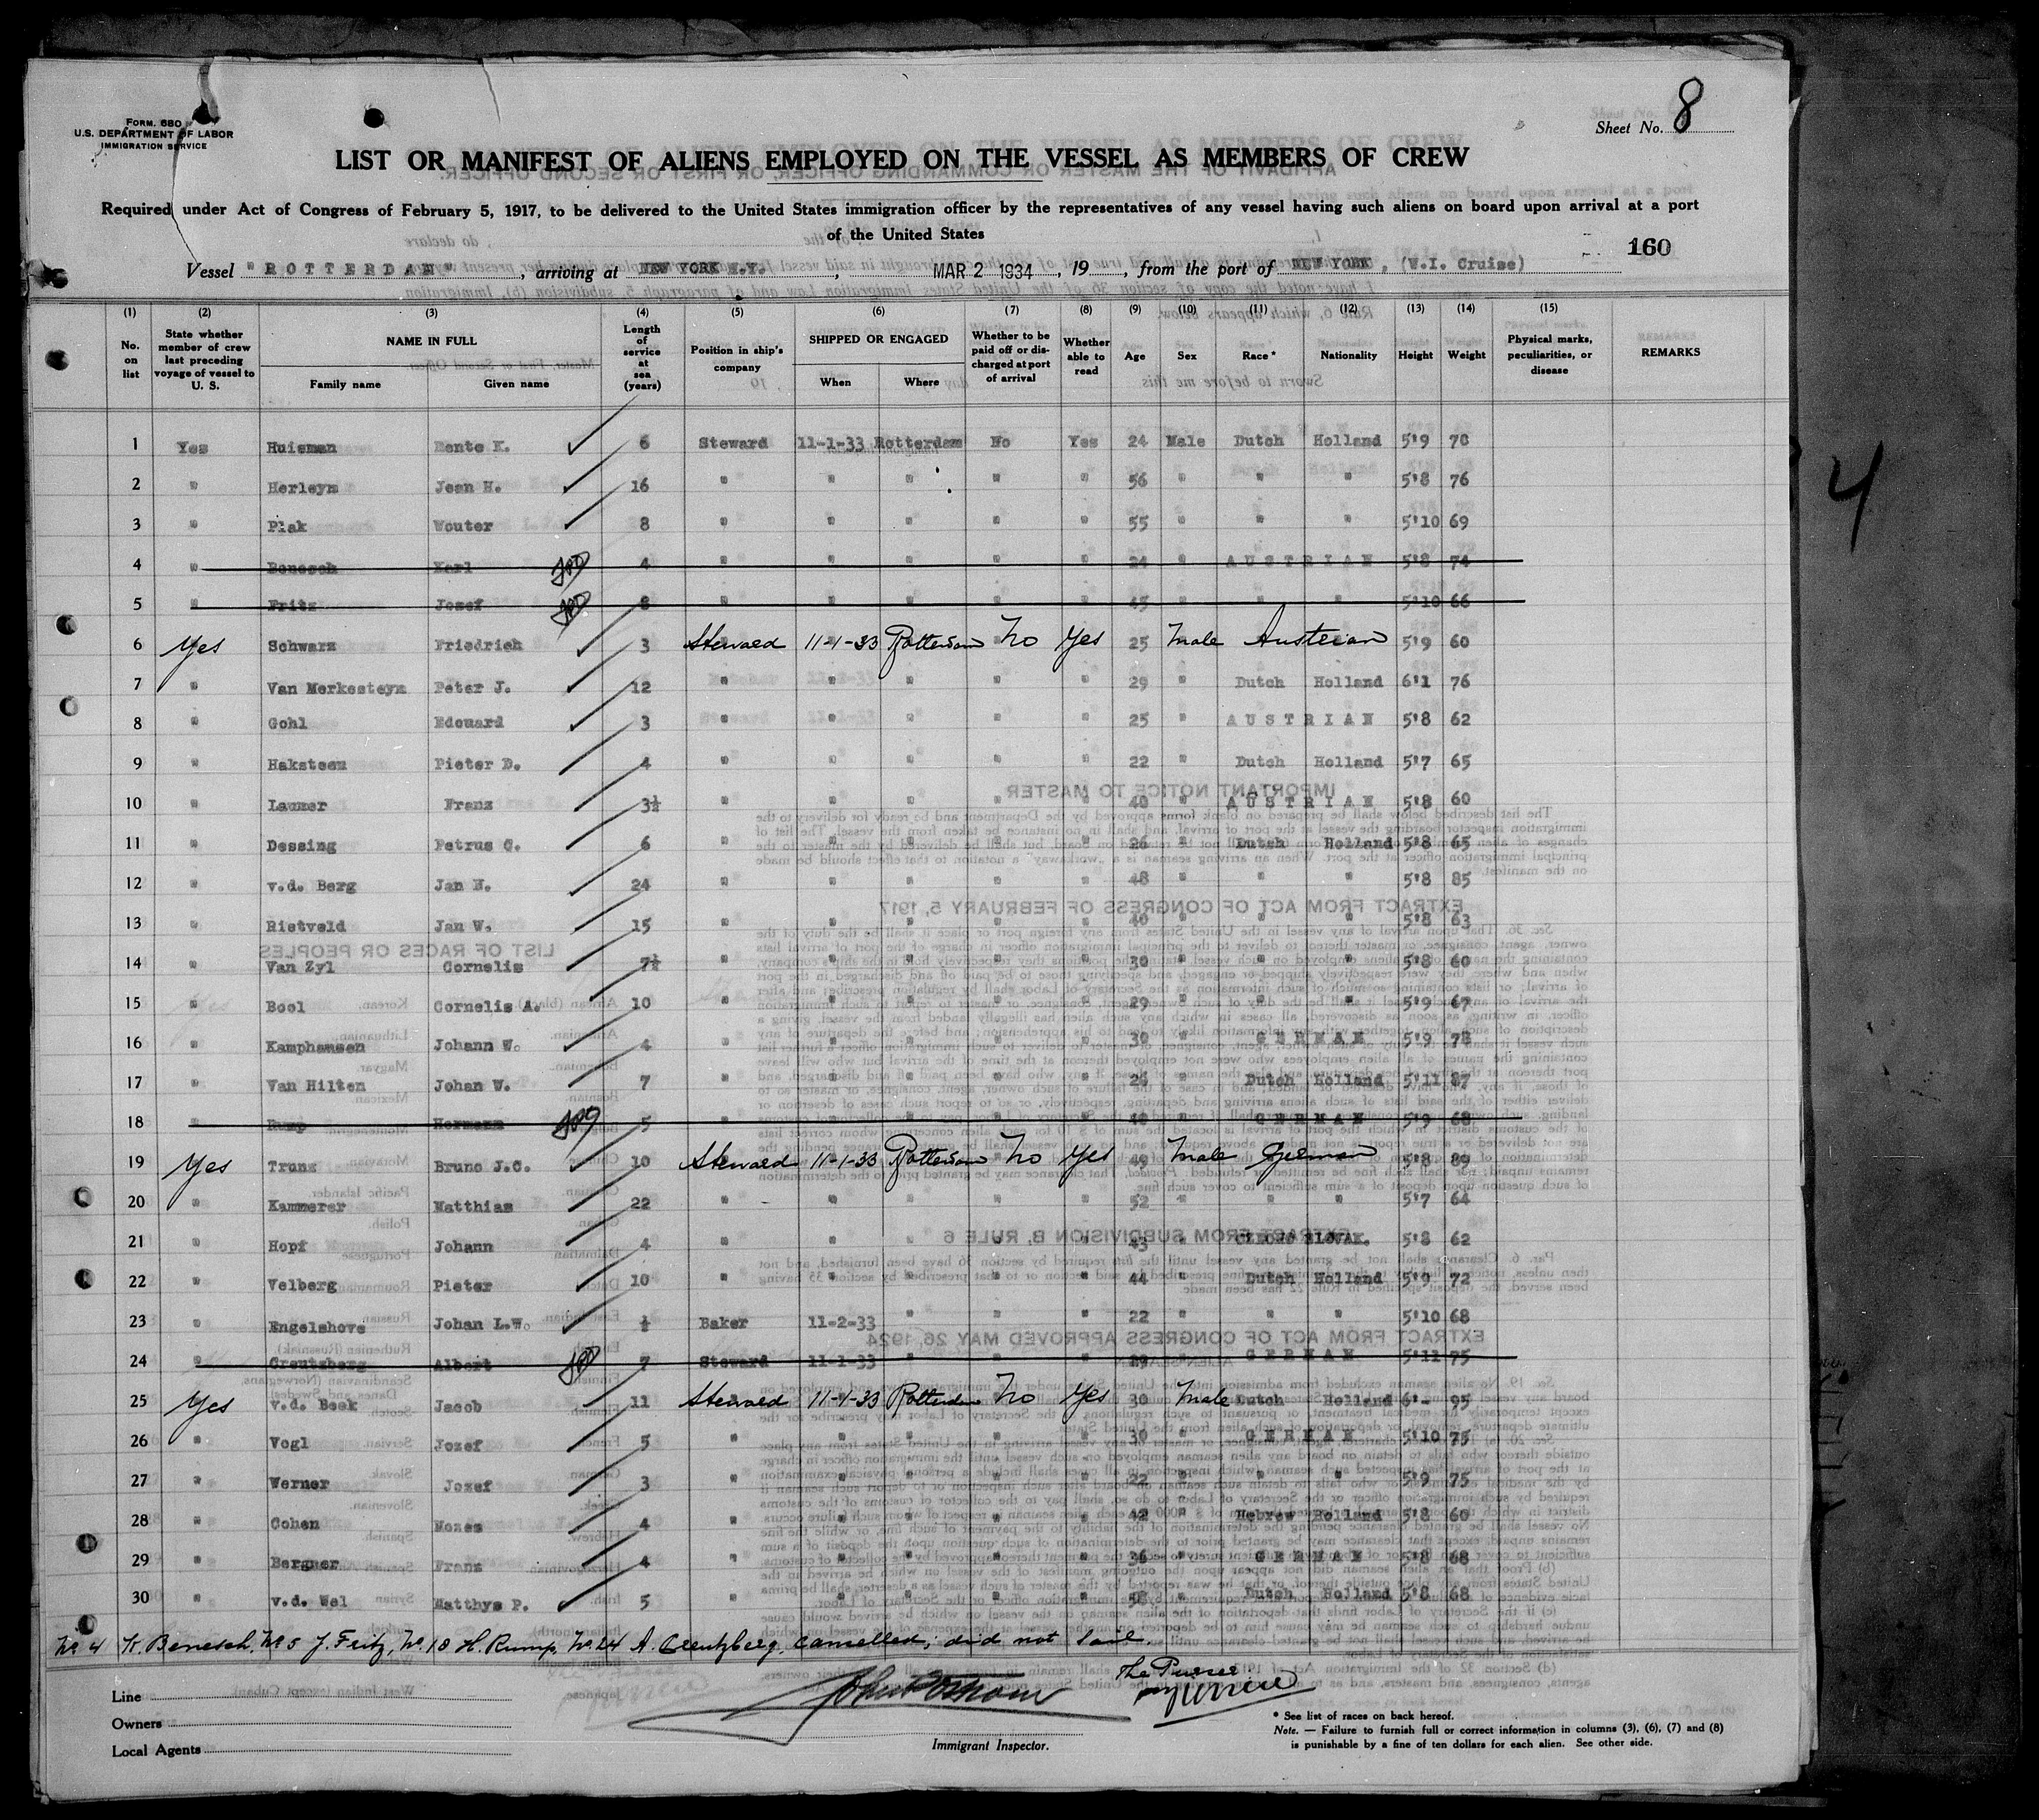 Sheet No. 8
FORM. 680
U.S. DEPARTMENT OF LABOR
IMMIGRATION SERVICE
LIST OR MANIFEST OF ALIENS EMPLOYED ON THE VESSEL AS MEMBERS OF CREW
Required under Act of Congress of February 5, 1917, to be delivered to the United States immigration officer by the representatives of any vessel having such aliens on board upon arrival at a port
of the United States
160
Vessel "ROTTERDAM", arriving at NEW YORK N.Y., MAR 2 1934, 19, from the port of NEW YORK, (W.I. Cruise)
(1) No. on list (2) State whether member of crew last preceding voyage of vessel to U. S. (3) NAME IN FULL Family name Given name (4) Length of service at sea (years) (5) Position in ship's company (6) SHIPPED OR ENGAGED When Where (7) Whether to be paid off or discharged at port of arrival (8) Whether able to read (9) Age (10) Sex (11) Race* (12) Nationality (13) Height (14) Weight (15) Physical marks, peculiarities, or disease REMARKS
1 Yes Huisman Bente K. 6 Steward 11-1-33 Rotterdam No Yes 24 Male Dutch Holland 5'9 70
2 " Herleyn Jean H. 16 " " " " " 56 " " " 5'8 76
3 " Plak Wouter 8 " " " " " 55 " " " 5'10 69
4 " Benesch Karl 4 " " " " " 24 " AUSTRIAN 5'8 74
5 " Fritz Jozef 8 " " " " " 45 " " " 5'10 66
6 Yes Schwarz Friedrich 3 Steward 11-1-33 Rotterdam No Yes 25 Male Austrian 5'9 60
7 " Van Merkesteyn Peter J. 12 " " " " " 29 " Dutch Holland 6'1 76
8 " Gohl Edouard 3 " " " " " 25 " AUSTRIAN 5'8 62
9 " Haksteen Pieter D. 4 " " " " " 22 " Dutch Holland 5'7 65
10 " Launer Franz 3½ " " " " " 40 " AUSTRIAN 5'8 60
11 " Dessing Petrus C. 6 " " " " " 26 " Dutch Holland 5'8 65
12 " v.d. Berg Jan N. 24 " " " " " 48 " " " 5'8 85
13 " Rietveld Jan W. 15 " " " " " 40 " " " 5'8 63
14 " Van Zyl Cornelis 7½ " " " " " 30 " " " 5'8 60
15 " Bool Cornelis A. 10 " " " " " 29 " " " 5'9 67
16 " Kamphansen Johann W. 4 " " " " " 30 " GERMAN 5'9 78
17 " Van Hilten Johan W. 7 " " " " " 26 " Dutch Holland 5'11 87
18 " Rump Hermann 5 " " " " " 40 " GERMAN 5'9 68
19 Yes Trunz Bruno J.C. 10 Steward 11-1-33 Rotterdam No Yes 49 Male German 5'8 89
20 " Kammerer Matthias 22 " " " " " 52 " " " 5'7 64
21 " Hopf Johann 4 " " " " " 43 " CZECHO SLOVAK. 5'8 62
22 " Velberg Pieter 10 " " " " " 44 " Dutch Holland 5'9 72
23 " Engelshove Johan L.W. ½ Baker 11-2-33 " " " 22 " " " 5'10 68
24 " Creutzberg Albert 7 Steward 11-1-33 " " " 29 " GERMAN 5'11 75
25 Yes v.d. Beek Jacob 11 Steward 11-1-33 Rotterdam No Yes 30 Male Dutch Holland 6'- 95
26 " Vogl Jozef 5 " " " " " 30 " GERMAN 5'10 75
27 " Werner Jozef 3 " " " " " 22 " " " 5'9 75
28 " Cohen Mozes 4 " " " " " 42 " Hebrew Holland 5'8 60
29 " Bergner Franz 4 " " " " " 36 " GERMAN 5'8 68
30 " v.d. Wel Matthys P. 5 " " " " " 58 " Dutch Holland 5'8 68
No. 4 K. Benesch, No 5 J. Fritz, No. 18 H. Rump, No. 24 A. Creutzberg. Cancelled; did not sail.
The Purser
Line
Owners
Local Agents
Immigrant Inspector.
* See list of races on back hereof.
Note. — Failure to furnish full or correct information in columns (3), (6), (7) and (8)
is punishable by a fine of ten dollars for each alien. See other side.
4